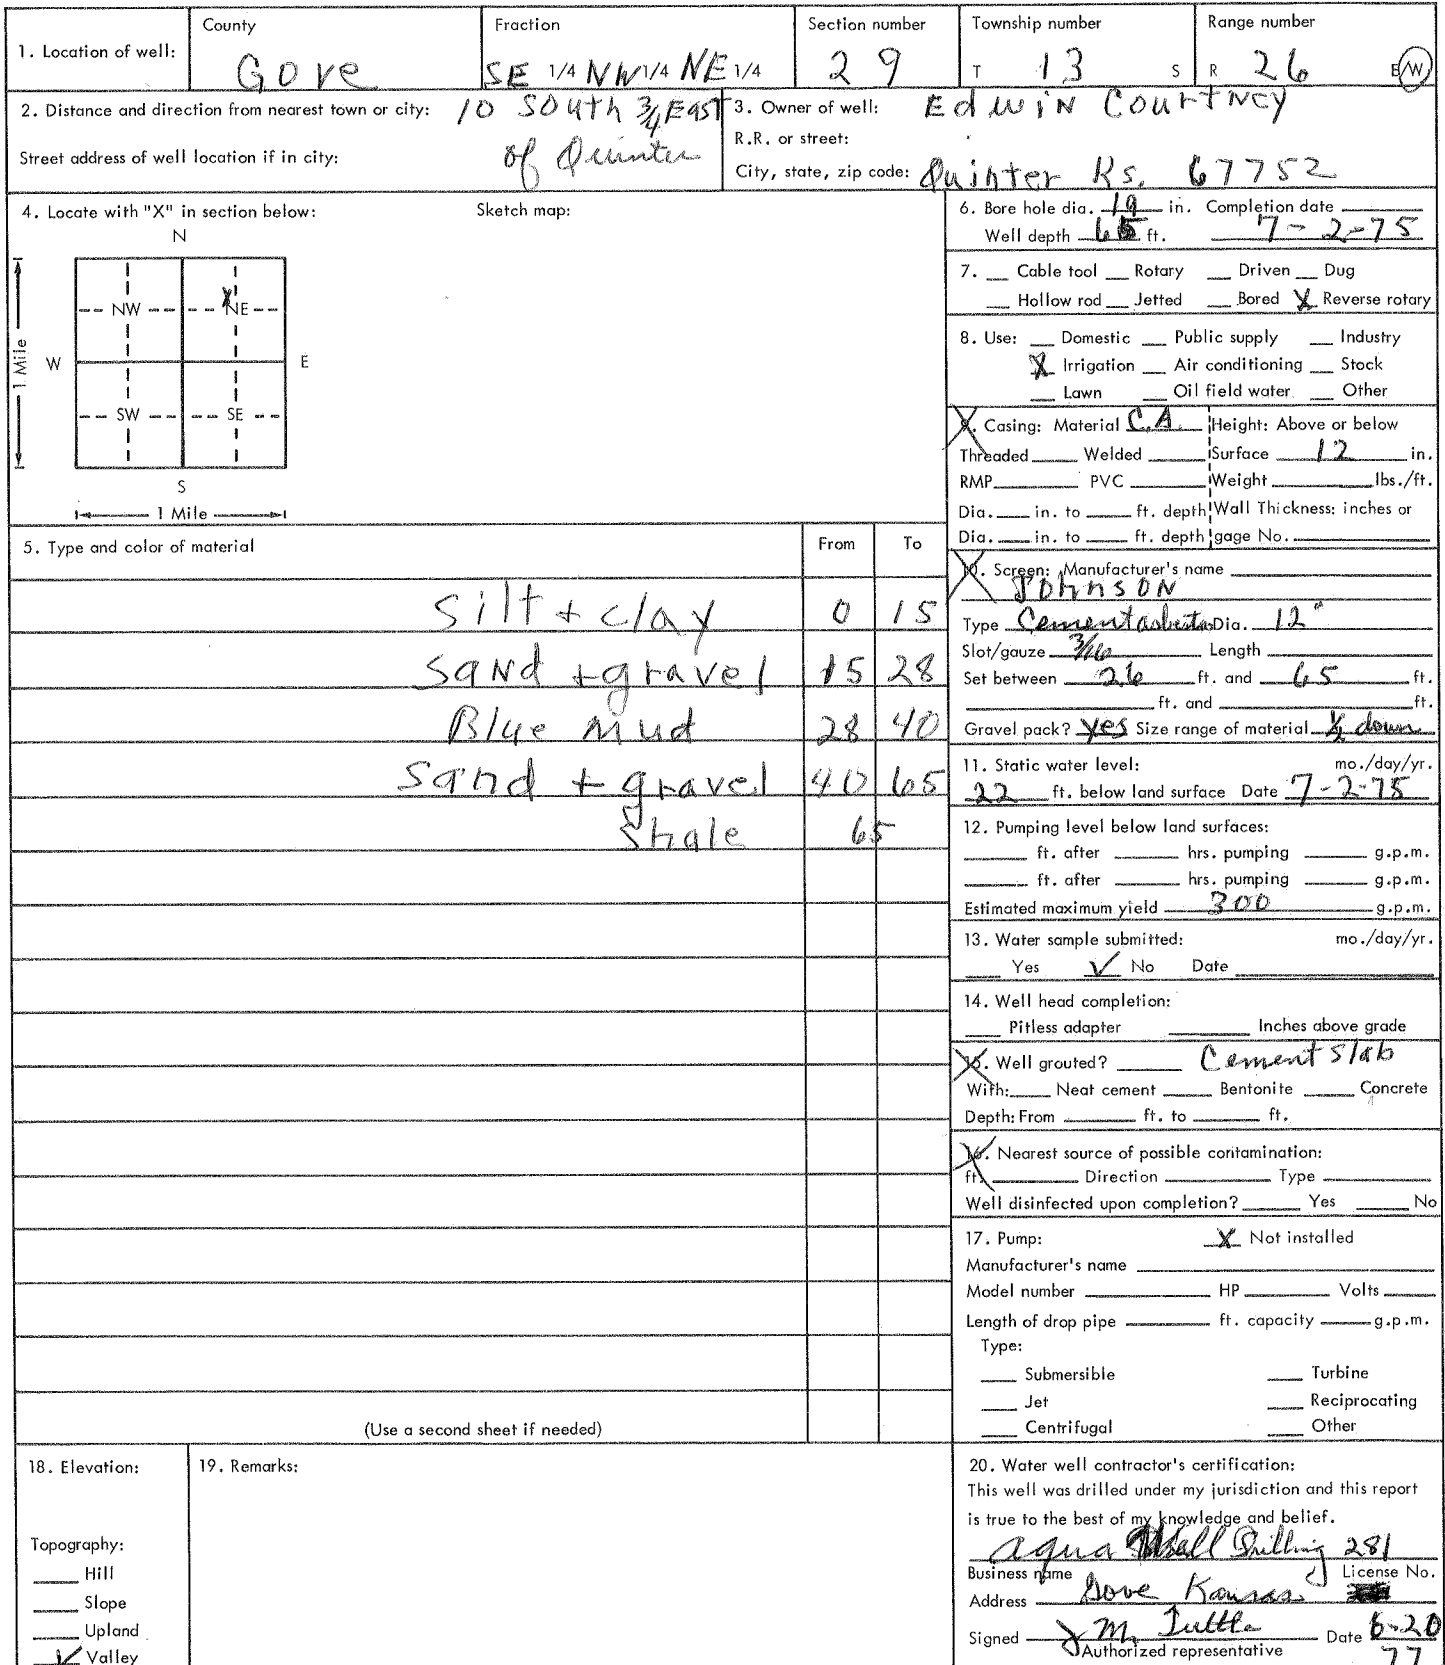 1. Location of well:
County
Gove
Fraction
SE 1/4 NW 1/4 NE 1/4
Section number
29
Township number
T 13 S
Range number
R 26 E/W
2. Distance and direction from nearest town or city: 10 South 3/4 East
of Quinter
Street address of well location if in city:
3. Owner of well: Edwin Courtney
R.R. or street:
City, state, zip code: Quinter Ks. 67752
4. Locate with "X" in section below:
Sketch map:
N
X
NW NE
W E
1 Mile
SW SE
S
1 Mile
5. Type and color of material From To
Silt + clay 0 15
Sand + gravel 15 28
Blue Mud 28 40
Sand + gravel 40 65
Shale 65
(Use a second sheet if needed)
6. Bore hole dia. 19 in. Completion date
Well depth 65 ft. 7-2-75
7. Cable tool Rotary Driven Dug
Hollow rod Jetted Bored X Reverse rotary
8. Use: Domestic Public supply Industry
X Irrigation Air conditioning Stock
Lawn Oil field water Other
9. Casing: Material C.A. Height: Above or below
Threaded Welded Surface 12 in.
RMP PVC Weight lbs./ft.
Dia. in. to ft. depth Wall Thickness: inches or
Dia. in. to ft. depth gage No.
10. Screen: Manufacturer's name
Johnson
Type Cement asbestos Dia. 12"
Slot/gauze 3/16 Length
Set between 26 ft. and 65 ft.
ft. and ft.
Gravel pack? yes Size range of material 1/2 down
11. Static water level: mo./day/yr.
22 ft. below land surface Date 7-2-75
12. Pumping level below land surfaces:
ft. after hrs. pumping g.p.m.
ft. after hrs. pumping g.p.m.
Estimated maximum yield 300 g.p.m.
13. Water sample submitted: mo./day/yr.
Yes ✓ No Date
14. Well head completion:
Pitless adapter Inches above grade
15. Well grouted? Cement Slab
With: Neat cement Bentonite Concrete
Depth: From ft. to ft.
16. Nearest source of possible contamination:
ft. Direction Type
Well disinfected upon completion? Yes No
17. Pump: X Not installed
Manufacturer's name
Model number HP Volts
Length of drop pipe ft. capacity g.p.m.
Type:
Submersible Turbine
Jet Reciprocating
Centrifugal Other
18. Elevation:
Topography:
Hill
Slope
Upland
✓ Valley
19. Remarks:
20. Water well contractor's certification:
This well was drilled under my jurisdiction and this report
is true to the best of my knowledge and belief.
Aqua Well Drilling 281
Business name License No.
Address Gove Kansas
Signed M. Tuttle Date 6-20
Authorized representative 77